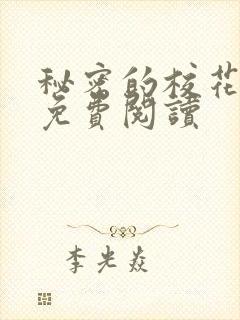 秘密的校花
免費閱讀
李光焱